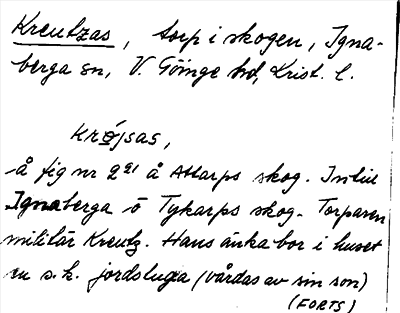 Kreutzas, torp i skogen, Igna-
berga sn, V. Göinge hd, Krist. l.
Kröjsas,
å fig nr 2²¹ å Attarps skog. Intill
Ignaberga ö Tykarps skog. Torparen
militär Kreutz. Hans änka bor i huset
en s.k. jordstuga (vårdas av sin son)
(FORTS)